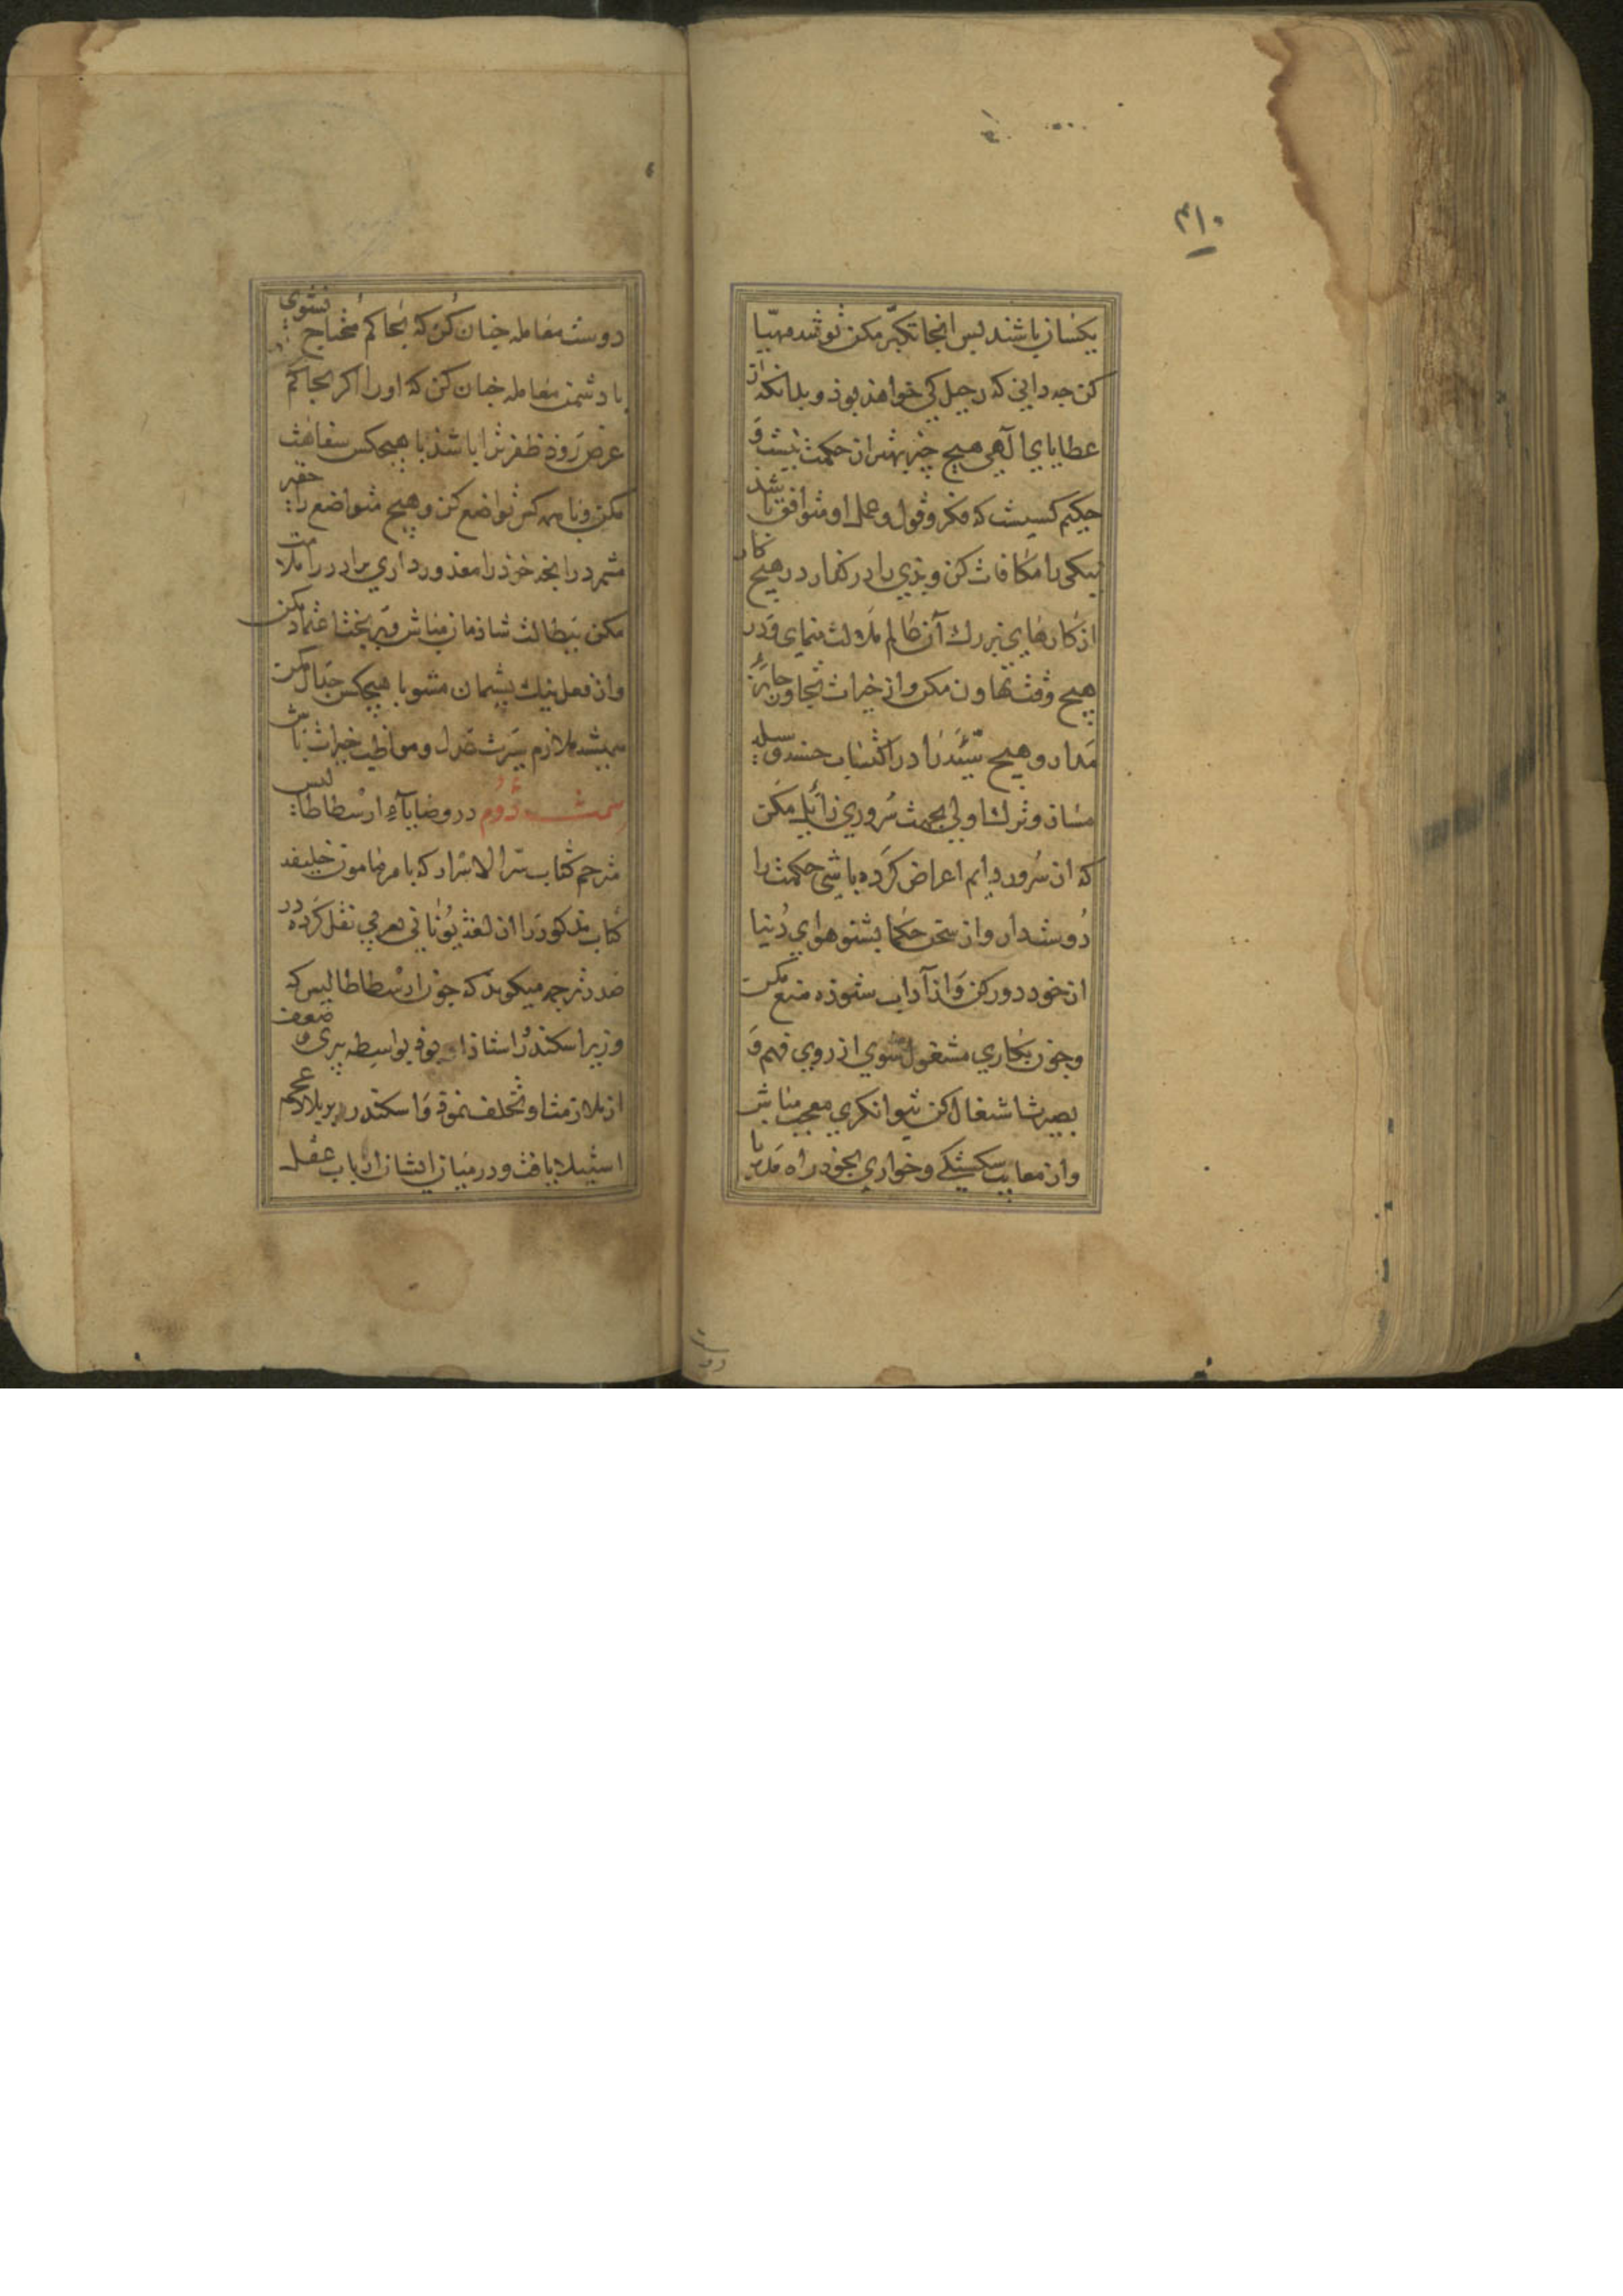 ۳۱۰
یکسان باشند پس اینجا تکبر مکن توشه مهیا
کن چه دانی که رحیل کی خواهد بود و بدانکه از
عطایای آلهی هیچ چیز بهتر از حکمت نیست و
حکیم کسیست که فکر و قول و عمل او متوافق باشد
نیکی را مکافات کن و بدی را در کذار در هیچ کار
از کارهای بزرك آن عالم ملالت منمای و در
هیچ وقت تهاون مکن و از خیرات تجاوز جایز
مدار و هیچ سیئه را در اکتساب حسنه وسیله
مساز و ترك اولی بجهت سروری زائل مکن
که از سرور دایم اعراض کرده باشی حکمت را
دوست دار و از سخن حکما بشنو هوای دنیا
از خود دور کن و از آداب ستوده منع مکن
و چون بکاری مشغول شوی از روی فهم و
بصیرت اشتغال کن بتوانکری معجب مباش
و از مصایب شکستکی و خواری بخود راه مده با
دوست
دوست معامله چنان کن که بحاکم محتاج نشوی
با دشمن معامله چنان کن که او را اکر بحاکم
عرض رود ظفر ترا باشد با هیچکس سفاهت
مکن و با همه کس تواضع کن و هیچ متواضع را حقیر
مشمر در انچه خود را معذور داری برادر را ملامت
مکن ببطالت شادمان مباش و بر بخت اعتماد مکن
و از فعل نیك پشیمان مشو با هیچکس جدال مکن
همیشه ملازم سیرت عدل و مواظب خیرات باش
سمت دوم در وصایاء ارسطاطالیس
مترجم کتاب سر الاسرار که بامر مامون خلیفه
کتاب مذکور را از لغت یونانی بعربی نقل کرده در
صدر ترجمه میکوید که چون ارسطاطالیس که
وزیر اسکندر و استاذ او بود بواسطه پیری و ضعف
از ملازمت او تخلف نمود و اسکندر بر بلاد عجم
استیلا یافت و در میان ایشان ارباب عقل